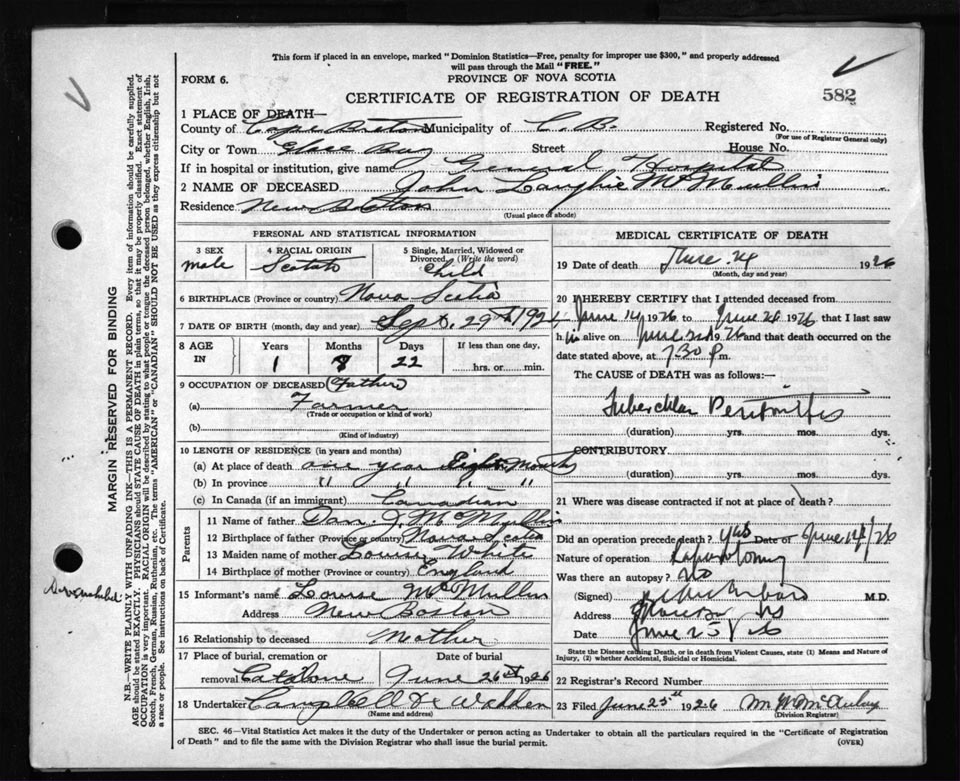 This form if placed in an envelope, marked "Dominion Statistics—Free, penalty for improper use $300," and properly addressed
will pass through the Mail "FREE."
FORM 6.
PROVINCE OF NOVA SCOTIA
CERTIFICATE OF REGISTRATION OF DEATH
582
1 PLACE OF DEATH—
County of Cape Breton Municipality of C. B. Registered No.
(For use of Registrar General only)
City or Town Glace Bay Street House No.
If in hospital or institution, give name General Hospital
2 NAME OF DECEASED John Lauphie McMullin
Residence New Boston
(Usual place of abode)
PERSONAL AND STATISTICAL INFORMATION
3 SEX male
4 RACIAL ORIGIN Scotch
5 Single, Married, Widowed or
Divorced (Write the word)
Child
6 BIRTHPLACE (Province or country) Nova Scotia
7 DATE OF BIRTH (month, day and year) Sept. 29th 1924
8 AGE IN Years Months Days If less than one day,
1 8 22 hrs. or min.
9 OCCUPATION OF DECEASED (Father)
(a) Farmer
(Trade or occupation or kind of work)
(b)
(Kind of industry)
10 LENGTH OF RESIDENCE (in years and months)
(a) At place of death one year Eight Months
(b) In province " " " "
(c) In Canada (if an immigrant) Canadian
Parents
11 Name of father Dan. J. McMullin
12 Birthplace of father (Province or country) Nova Scotia
13 Maiden name of mother Louise White
14 Birthplace of mother (Province or country) England
15 Informant's name Louise McMullin
Address New Boston
16 Relationship to deceased Mother
17 Place of burial, cremation or removal Catalone
Date of burial June 26th 1926
18 Undertaker Campbell & Wadden
(Name and address)
MEDICAL CERTIFICATE OF DEATH
19 Date of death June 24 1926
(Month, day and year)
20 I HEREBY CERTIFY that I attended deceased from
June 14 1926 to June 24 1926 that I last saw
h im alive on June 24 1926 and that death occurred on the
date stated above, at 7.30 P.m.
The CAUSE of DEATH was as follows:—
Tubercular Peritonitis
(duration) yrs. mos. dys.
CONTRIBUTORY
(duration) yrs. mos. dys.
21 Where was disease contracted if not at place of death?
Did an operation precede death? yes Date of June 14/26
Nature of operation Laparotomy
Was there an autopsy? No
(Signed) M.D.
Address
Date June 25/26
State the Disease causing Death, or in death from Violent Causes, state (1) Means and Nature of
Injury, (2) whether Accidental, Suicidal or Homicidal.
22 Registrar's Record Number
23 Filed June 25th 1926
(Division Registrar)
SEC. 46—Vital Statistics Act makes it the duty of the Undertaker or person acting as Undertaker to obtain all the particulars required in the "Certificate of Registration
of Death" and to file the same with the Division Registrar who shall issue the burial permit.
(OVER)
MARGIN RESERVED FOR BINDING
N.B.—WRITE PLAINLY WITH UNFADING INK—THIS IS A PERMANENT RECORD. Every item of information should be carefully supplied.
AGE should be stated EXACTLY. PHYSICIANS should STATE CAUSE OF DEATH in plain terms, so that it may be properly classified. Exact statement of
OCCUPATION is very important. RACIAL ORIGIN will be described by stating to what people or tongue the deceased person belonged, whether English, Irish,
Scotch, French, German, Russian, Ruthenian, etc. The terms "AMERICAN" or "CANADIAN" SHOULD NOT BE USED as they express citizenship but not
a race or people. See instructions on back of Certificate.